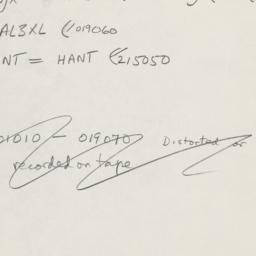 AL3XL (019060
NT = HANT (215050
01010 – 019070 Distorted or
recorded on tape